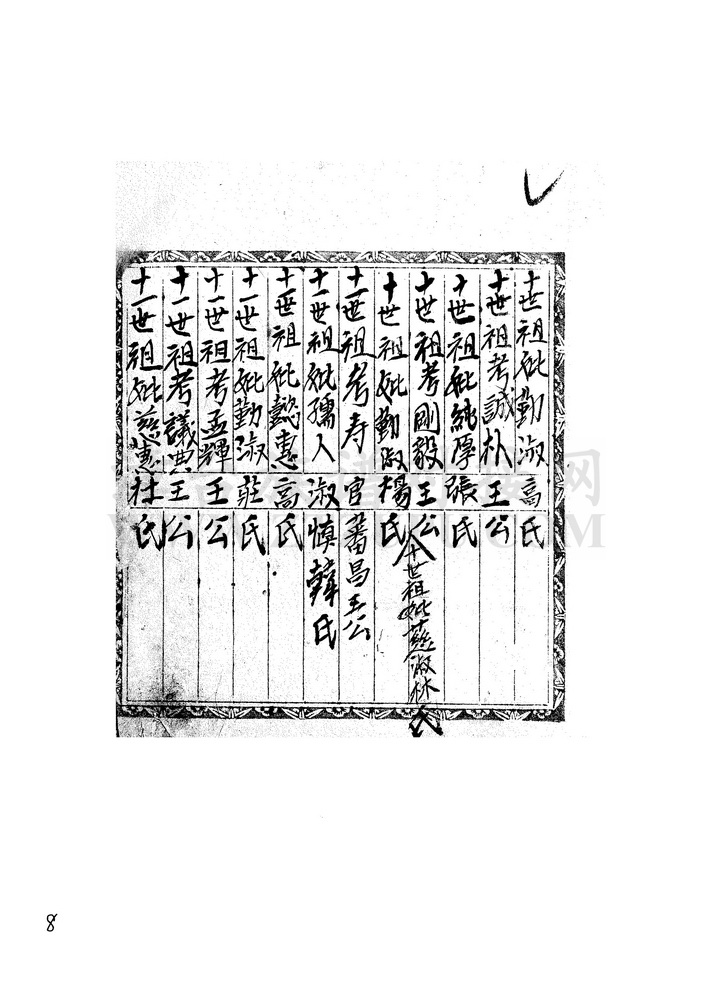 十世祖妣勤淑高氏
十世祖考誠朴王公
十世祖妣純厚張氏
十世祖考剛毅王公
十世祖妣慈淑林氏
十世祖妣勤淑楊氏
十一世祖考寿官蕃昌王公
十一世祖妣孺人淑慎韓氏
十一世祖妣懿惠高氏
十一世祖妣勤淑莊氏
十一世祖考孟輝王公
十一世祖考議典王公
十一世祖妣慈惠杜氏
8